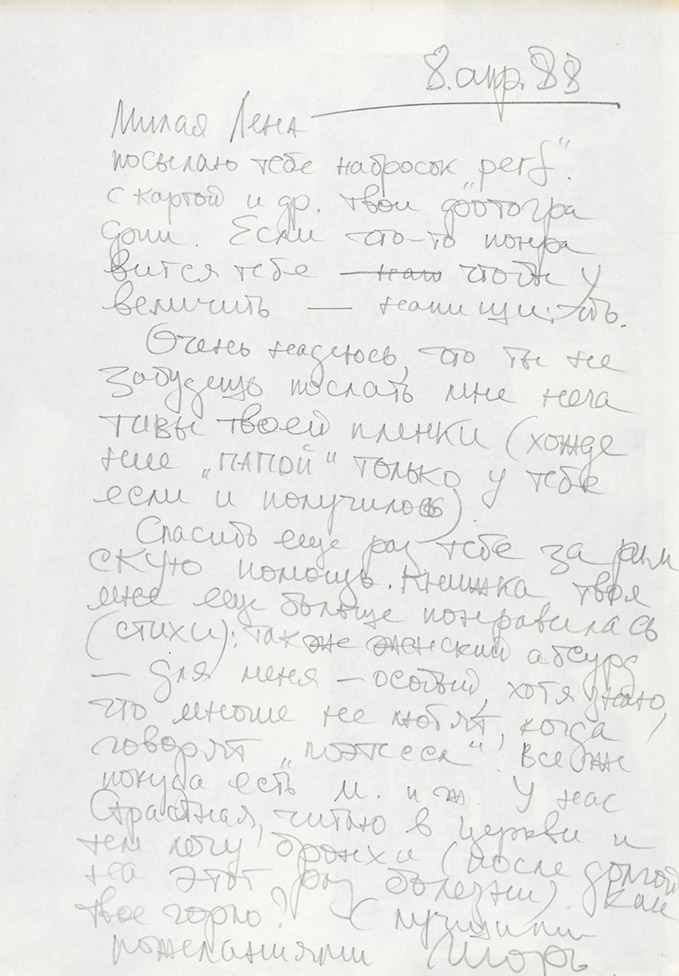 8. апр. 88
Милая Лена
посылаю тебе набросок „perf“.
с картой и др. твои фотогра
фии. Если что-то понра
вится тебе чтобы у
величить — напиши.
Очень надеюсь, что ты не
забудешь послать мне нега
тивы твоей пленки (хожде
ние „ПАПОЙ“ только у тебя
если и получилось)
Спасибо еще раз тебе за рим
скую помощь. Книжка твоя
мне еще больше понравилась
(стихи): также женский абсурд
— для меня — особый, хотя знаю,
что многие не любят, когда
говорят „поэтесса“. Все же
покуда есть м. и ж. У нас
Страстная, читаю в церкви и
тем лечу бронхи (после долгой
на этот раз болезни). Как
твое горло? С лучшими
пожеланиями Игорь